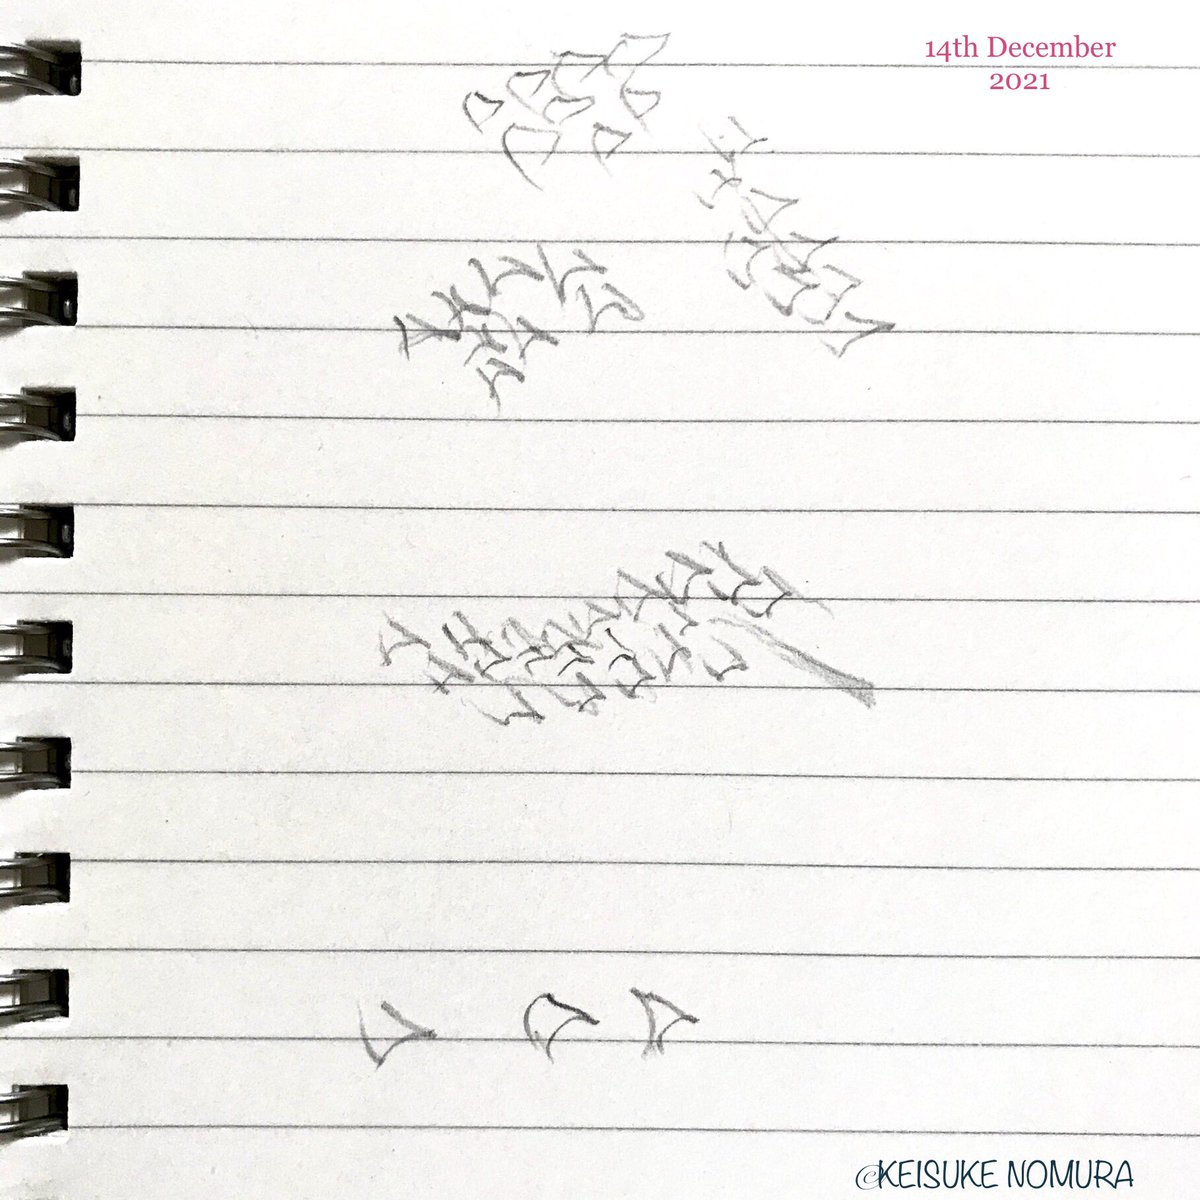 14th December
2021
©KEISUKE NOMURA